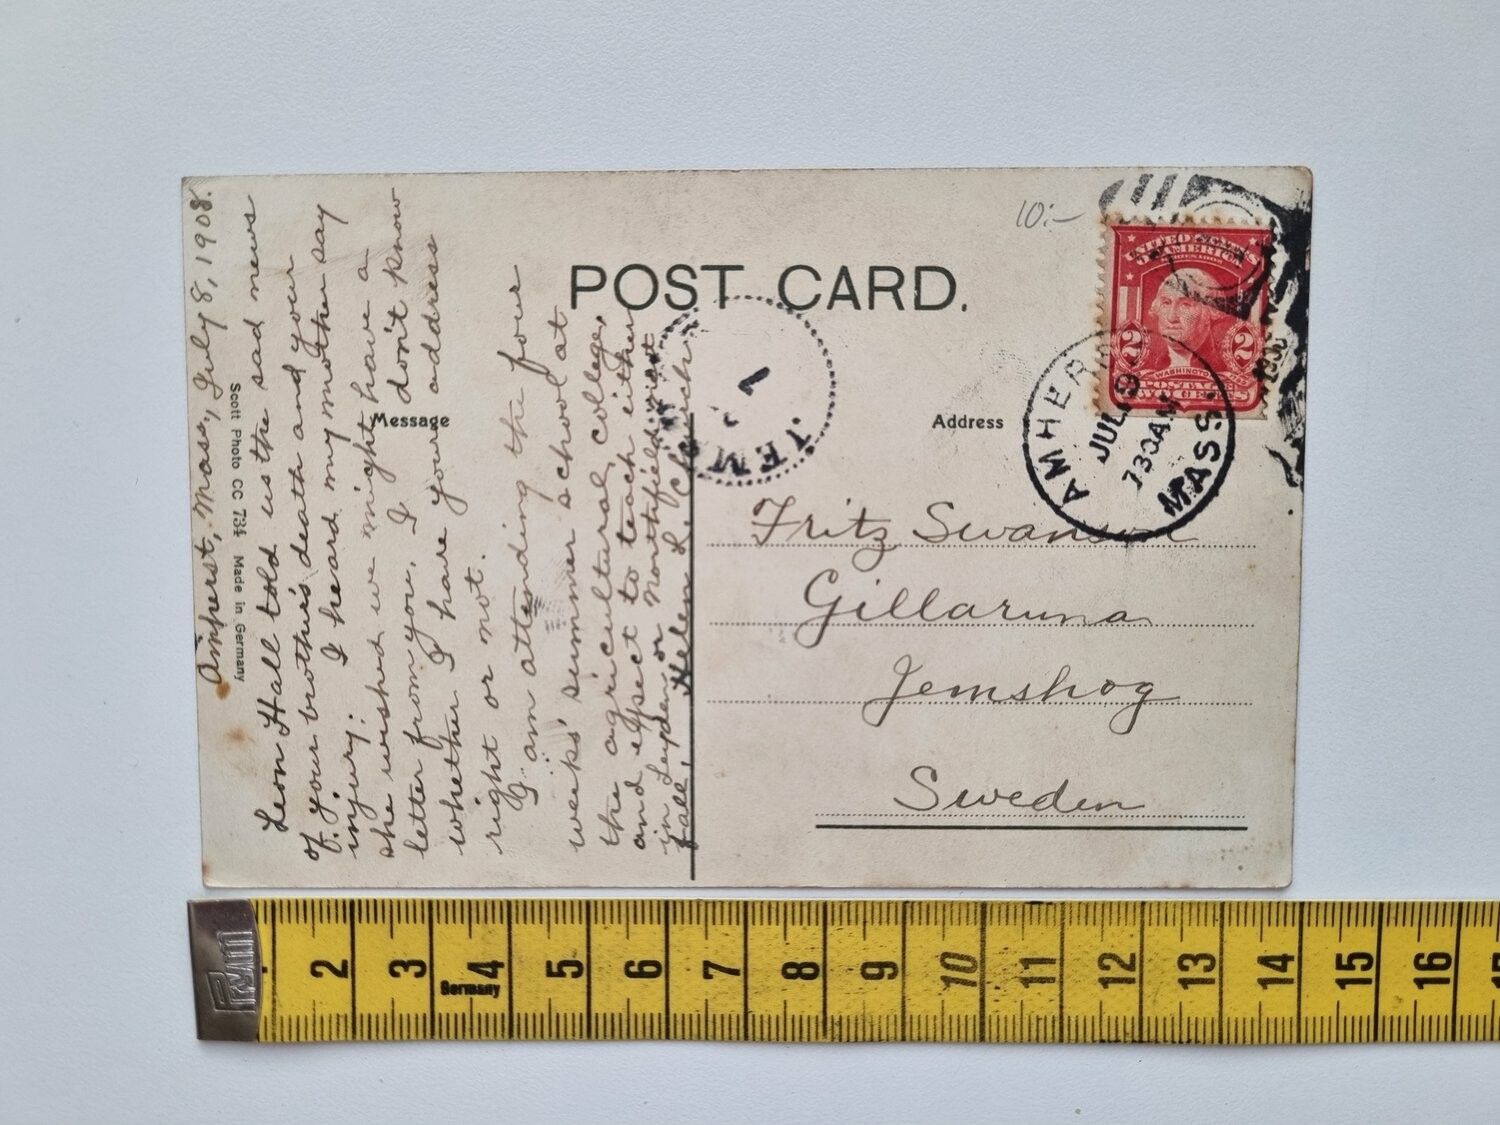 POST CARD.
Message
Address
Scott Photo CC 734 Made in Germany
10:-
Amherst, Mass., July 8, 1908.
Leon Hall told us the sad news
of your brother's death and your
injury. I heard my mother say
she wished we might have a
letter from you. I don't know
whether I have your address
right or not.
I am attending the four
weeks' summer school at
the agricultural college,
and expect to teach either
in Leyden or Northfield next
fall. Helen L. Church.
UNITED STATES
OF AMERICA
2 2
WASHINGTON
POSTAGE
TWO CENTS
AMHERST
JUL 9
730AM
MASS.
JEMS
Fritz Swanson
Gillaruna
Jemshog
Sweden
2 3 4 5 6 7 8 9 10 11 12 13 14 15 16
Germany